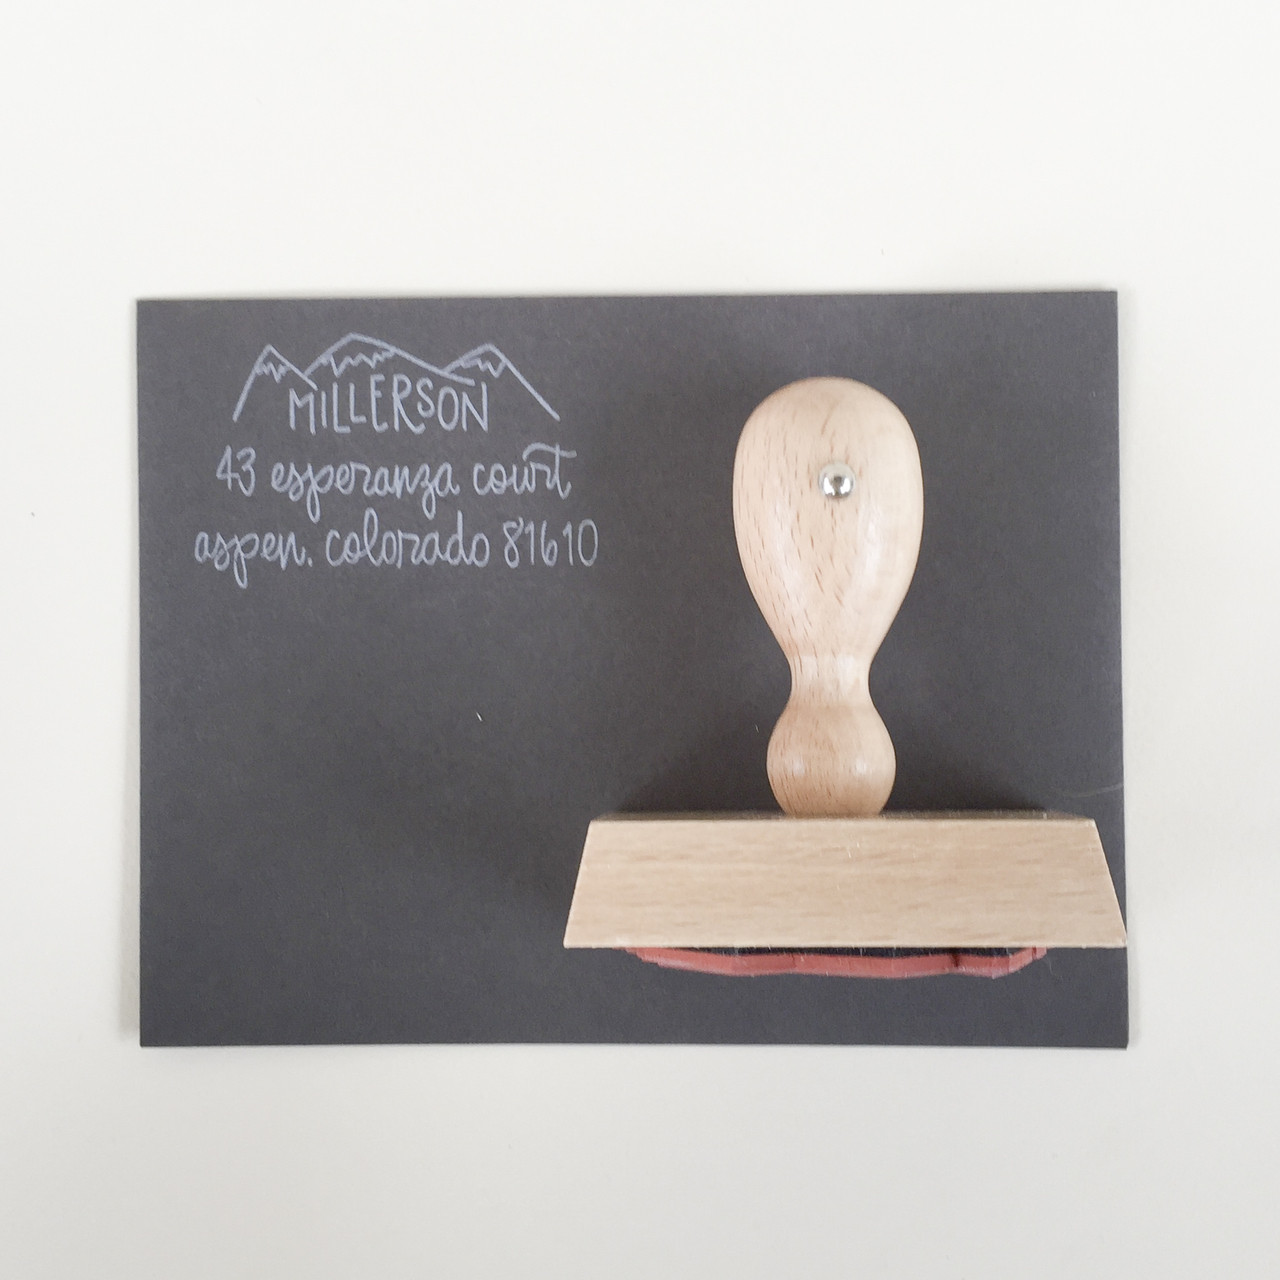 MILLERSON
43 esperanza court
aspen. colorado 81610